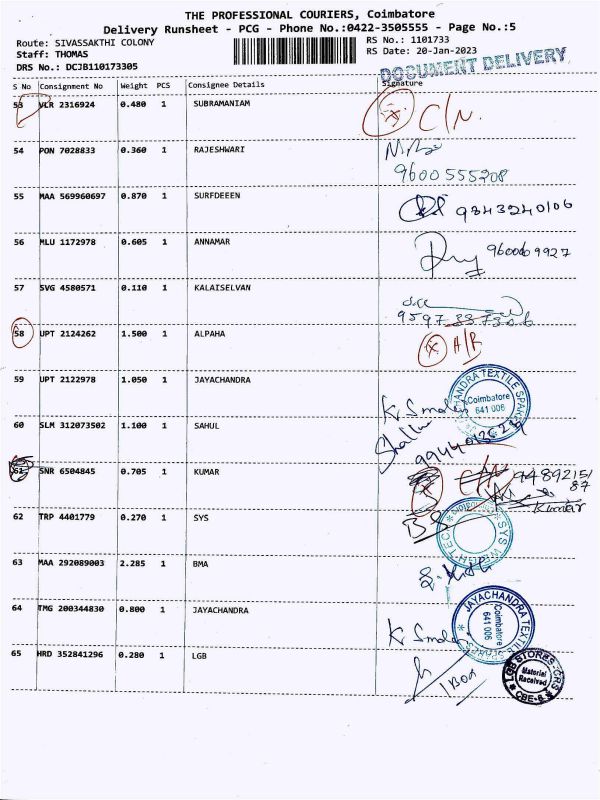 THE PROFESSIONAL COURIERS, Coimbatore
Delivery Runsheet - PCG - Phone No.:0422-3505555 - Page No.:5
Route: SIVASSAKTHI COLONY
RS No.: 1101733
Staff: THOMAS
RS Date: 20-Jan-2023
DRS No.: DCJB110173305
DOCUMENT DELIVERY
S No Consignment No Weight PCS Consignee Details Signature
53 VLR 2316924 0.480 1 SUBRAMANIAM C/N.
54 PON 7028833 0.360 1 RAJESHWARI
9600555208
55 MAA 569960697 0.870 1 SURFDEEEN 9343240106
56 MLU 1172978 0.605 1 ANNAMAR
57 SVG 4580571 0.110 1 KALAISELVAN
9597337306
58 UPT 2124262 1.500 1 ALPAHA
59 UPT 2122978 1.050 1 JAYACHANDRA
Coimbatore
641 006
60 SLM 312073502 1.100 1 SAHUL
61 SNR 6504845 0.705 1 KUMAR C/N
Kumar
62 TRP 4401779 0.270 1 SYS
SYS WEIGH TEC
63 MAA 292089003 2.285 1 BMA
64 TMG 200344830 0.800 1 JAYACHANDRA
JAYACHANDRA TEXTILE SPARES
Coimbatore
641 006
65 HRD 352841296 0.280 1 LGB
1 BOX
LGB STORES-CRS
Material
Received
CBE-6